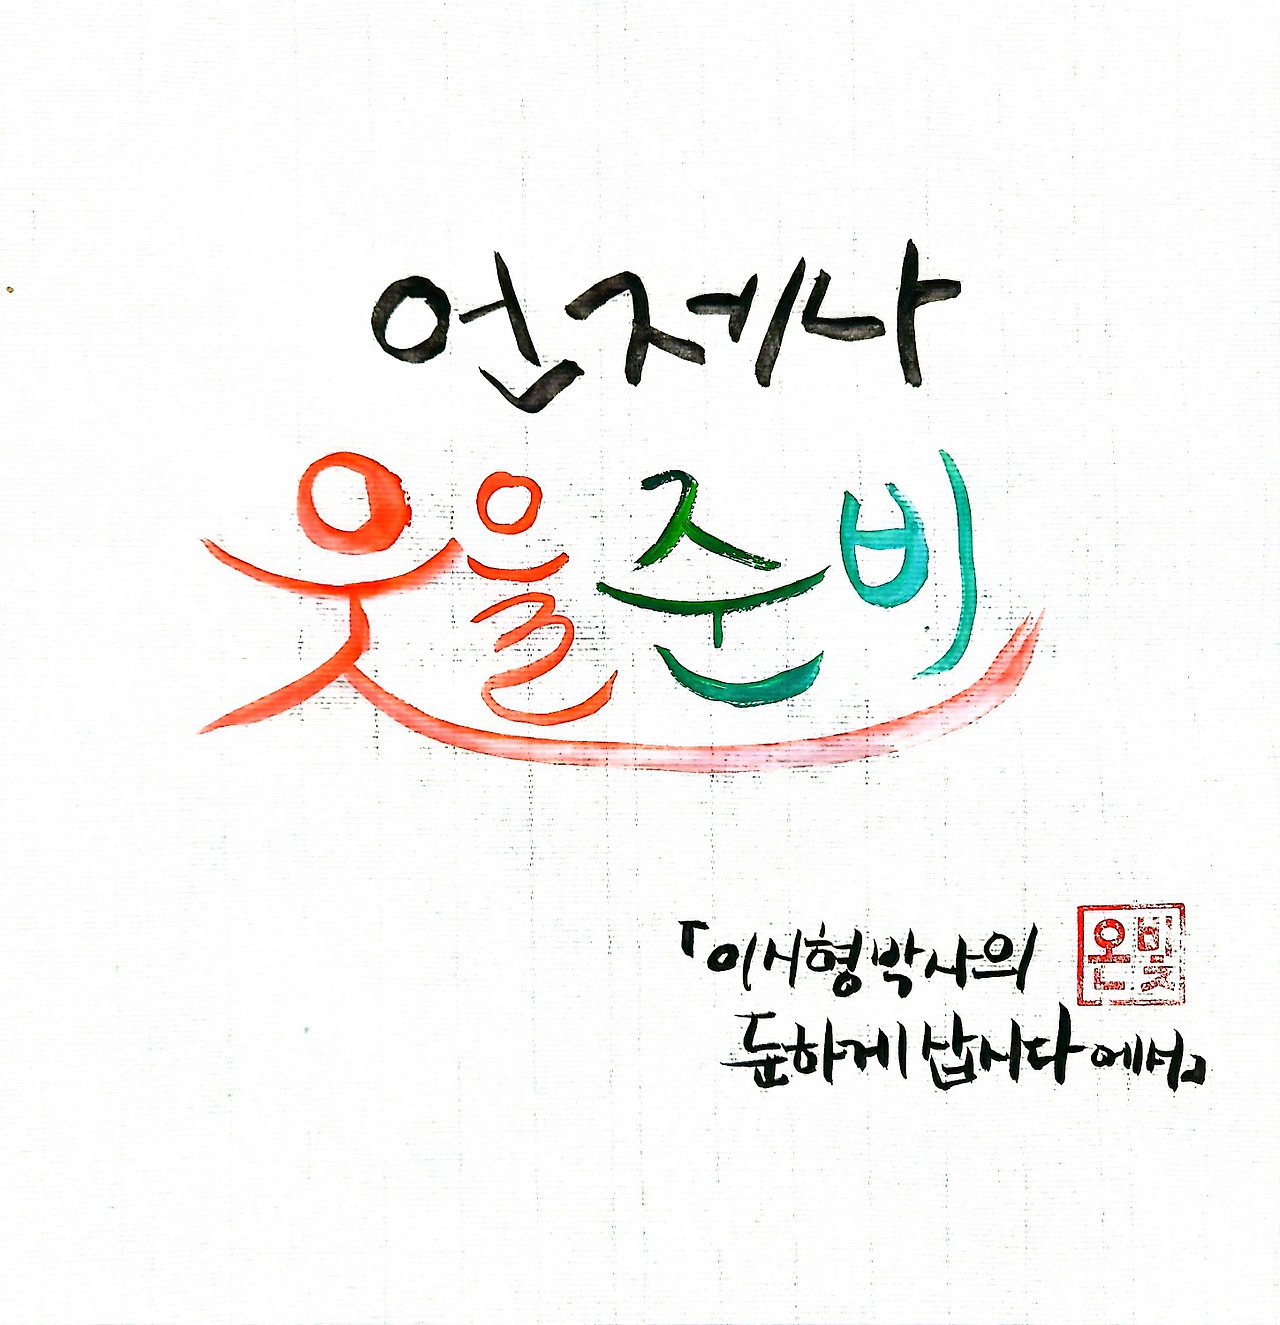 언제나
웃을준비
「이시형박사의
둔하게 삽시다 에서」
온빛